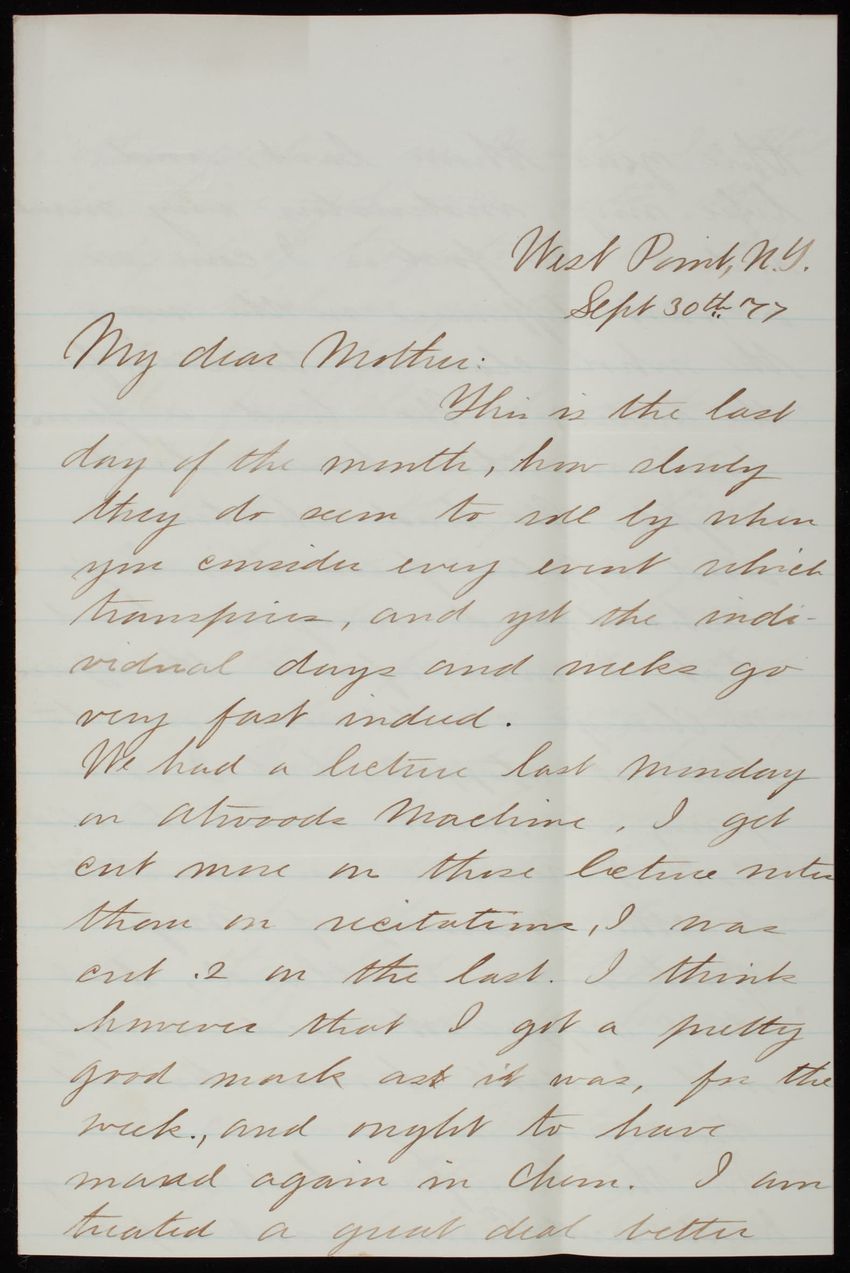 West Point, N.Y.
Sept 30th '77
My dear Mother:
This is the last
day of the month, how slowly
they do seem to roll by when
you consider every event which
transpires, and yet the indi-
vidual days and weeks go
very fast indeed.
We had a lecture last Monday
on Atwoods Machine, I get
cut more on those lecture notes
than on recitations, I was
cut .2 on the last. I think
however that I got a pretty
good mark as it was, for the
week., and ought to have
maxed again in Chem. I am
treated a great deal better